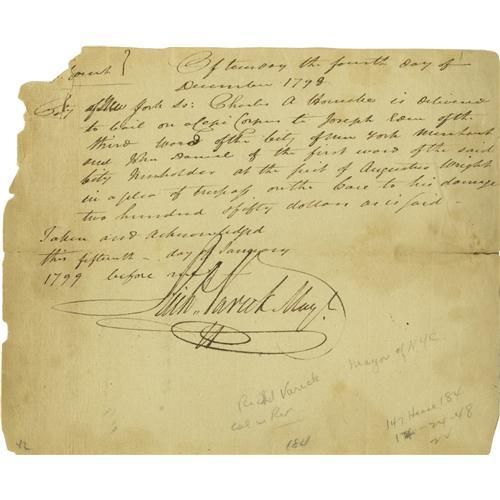 Of tuesday the fourth day of
December 1798
City of New York ss: Charles A is delivered
to bail on a Cepi Corpus to Joseph Eden of the
third ward of the City of New York Merchant
and of the first ward of the said
City at the suit of Augustus Wright
in a plea of trespass on the Case to his damage
two hundred & fifty dollars as is said
Taken and acknowledged
this fifteenth day of January
1799 before me
Rich. Varick May
Mayor of NYC
Richd Varick
Col in Rev
184
147 184
24-48